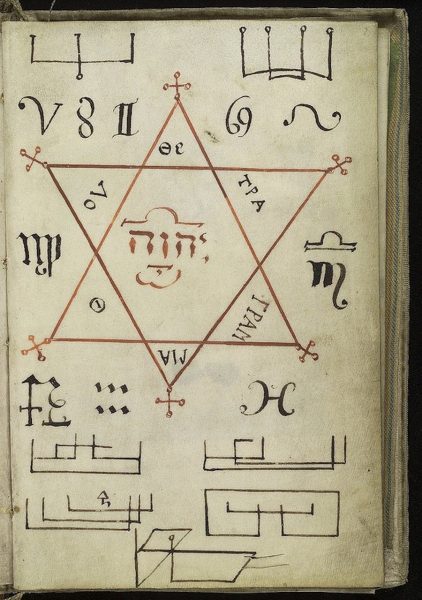 ♈ ♉ ♊ ♋ ♌
ΘΕ
ΤΡΑ
יהוה
♍ ♎
♏
Θ
ΓΡΑΜ
ΜΑ
♐ ♑ ♓